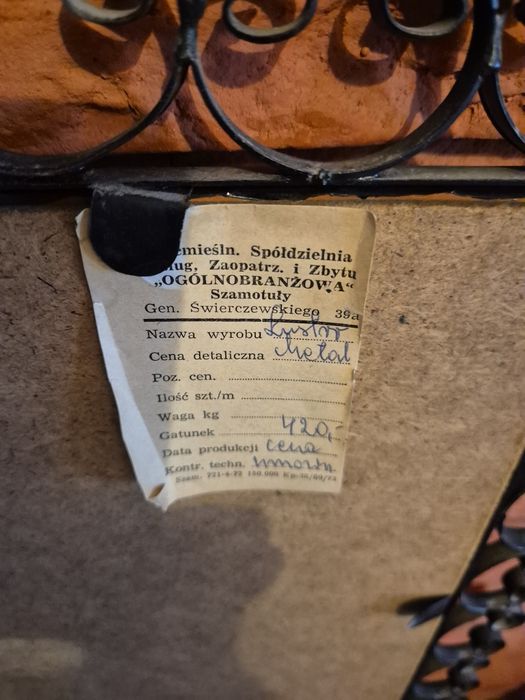 emieśln. Spółdzielnia
ług, Zaopatrz. i Zbytu
„OGÓLNOBRANŻOWA“
Szamotuły
Gen. Świerczewskiego 39a
Nazwa wyrobu
Cena detaliczna Metal
Poz. cen.
Ilość szt./m
Waga kg
Gatunek 420,-
Data produkcji cena
Kontr. techn. umown
Szam. 721-4-72 150.000